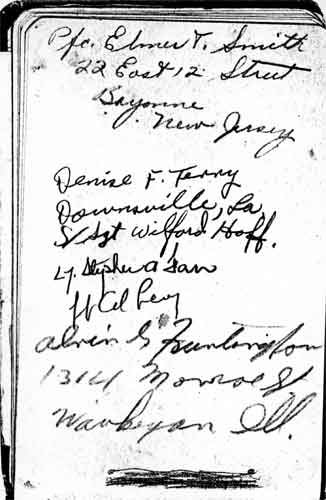 Pfc. Elmer T. Smith
22 East 12 Street
Bayonne
New Jersey
Denise F. Terry
Downsville, La
S/Sgt Wilford Hoff.
Lt. Stephen A
Lt Col
Alvin G Huntington
1314 Monroe St
Waukegan Ill.